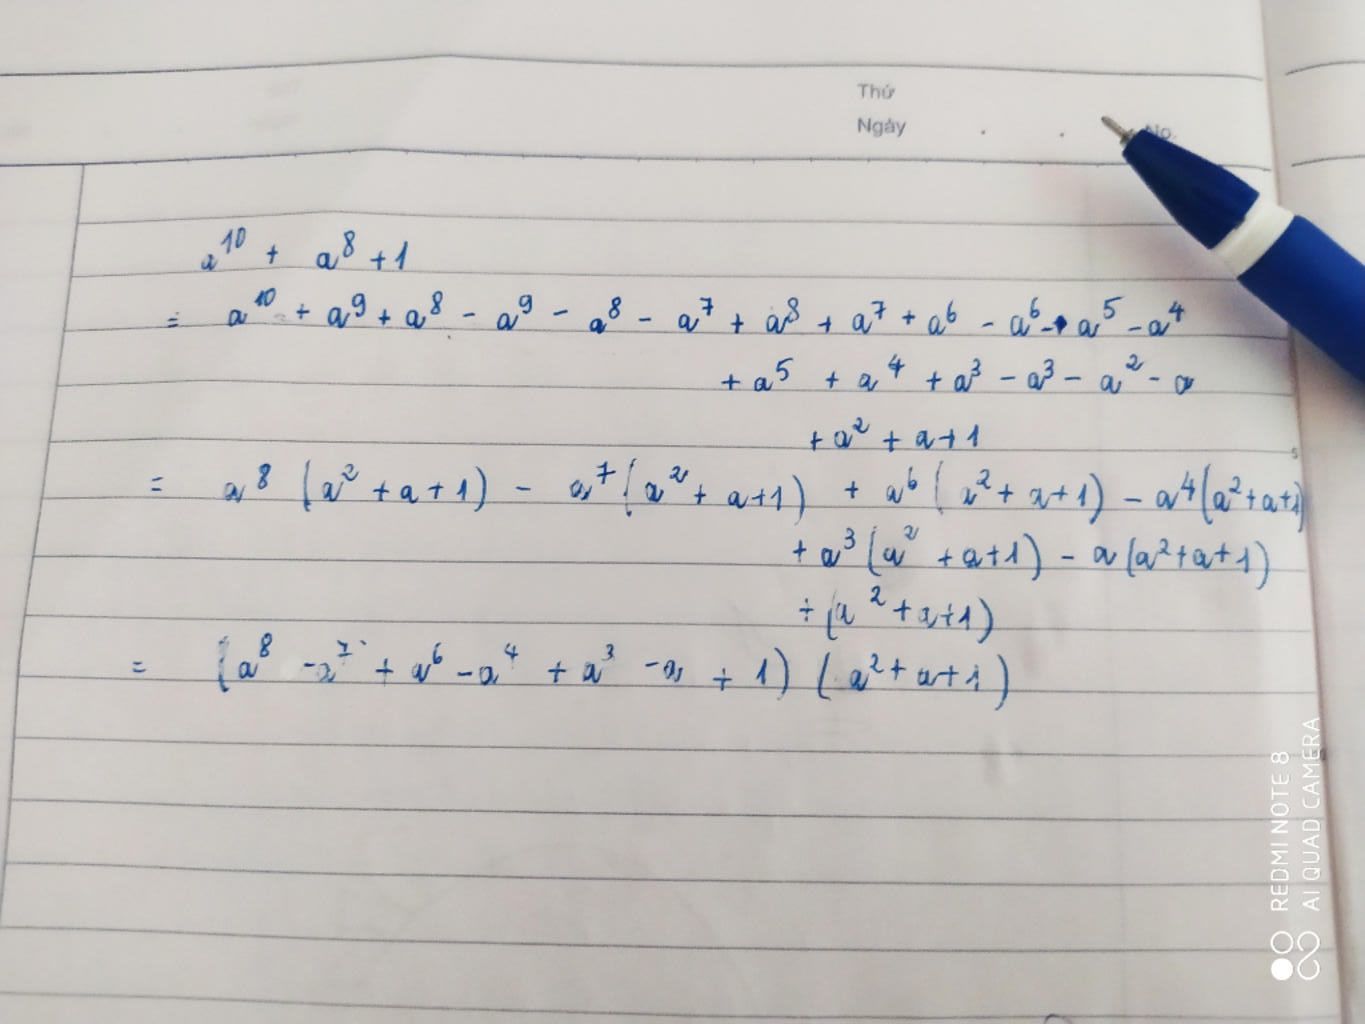 Thứ
Ngày . . No.
a¹⁰ + a⁸ + 1
= a¹⁰ + a⁹ + a⁸ - a⁹ - a⁸ - a⁷ + a⁸ + a⁷ + a⁶ - a⁶ - a⁵ - a⁴
+ a⁵ + a⁴ + a³ - a³ - a² - a
+ a² + a + 1
= a⁸ (a² + a + 1) - a⁷ (a² + a + 1) + a⁶ (a² + a + 1) - a⁴ (a² + a + 1)
+ a³ (a² + a + 1) - a (a² + a + 1)
+ (a² + a + 1)
= (a⁸ - a⁷ + a⁶ - a⁴ + a³ - a + 1) (a² + a + 1)
5
REDMI NOTE 8
AI QUAD CAMERA